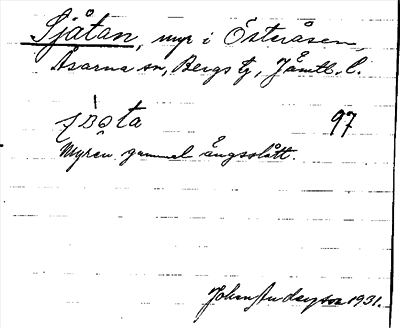 Sjåtan, myr i Österåsen,
Åsarna sn, Bergs tg, Jämtl. l.
97
Myren gammal ängsslått.
Johan Anderson 1931.